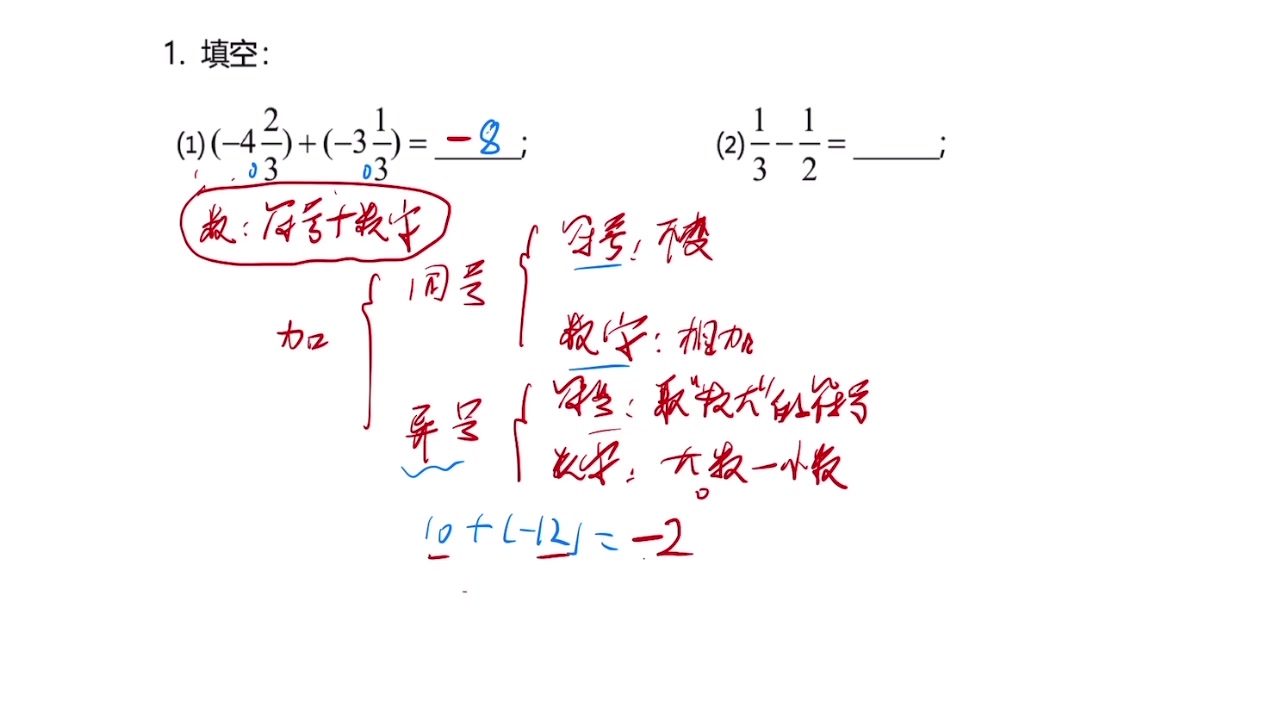 1. 填空：
(1) (−4 2/3) + (−3 1/3) = −8 ;
(2) 1/3 − 1/2 = ______ ;
数：符号+数字
加
同号
符号：不变
数字：相加
异号
符号：取"数大"的符号
数字：大数－小数
10+(-12)=-2